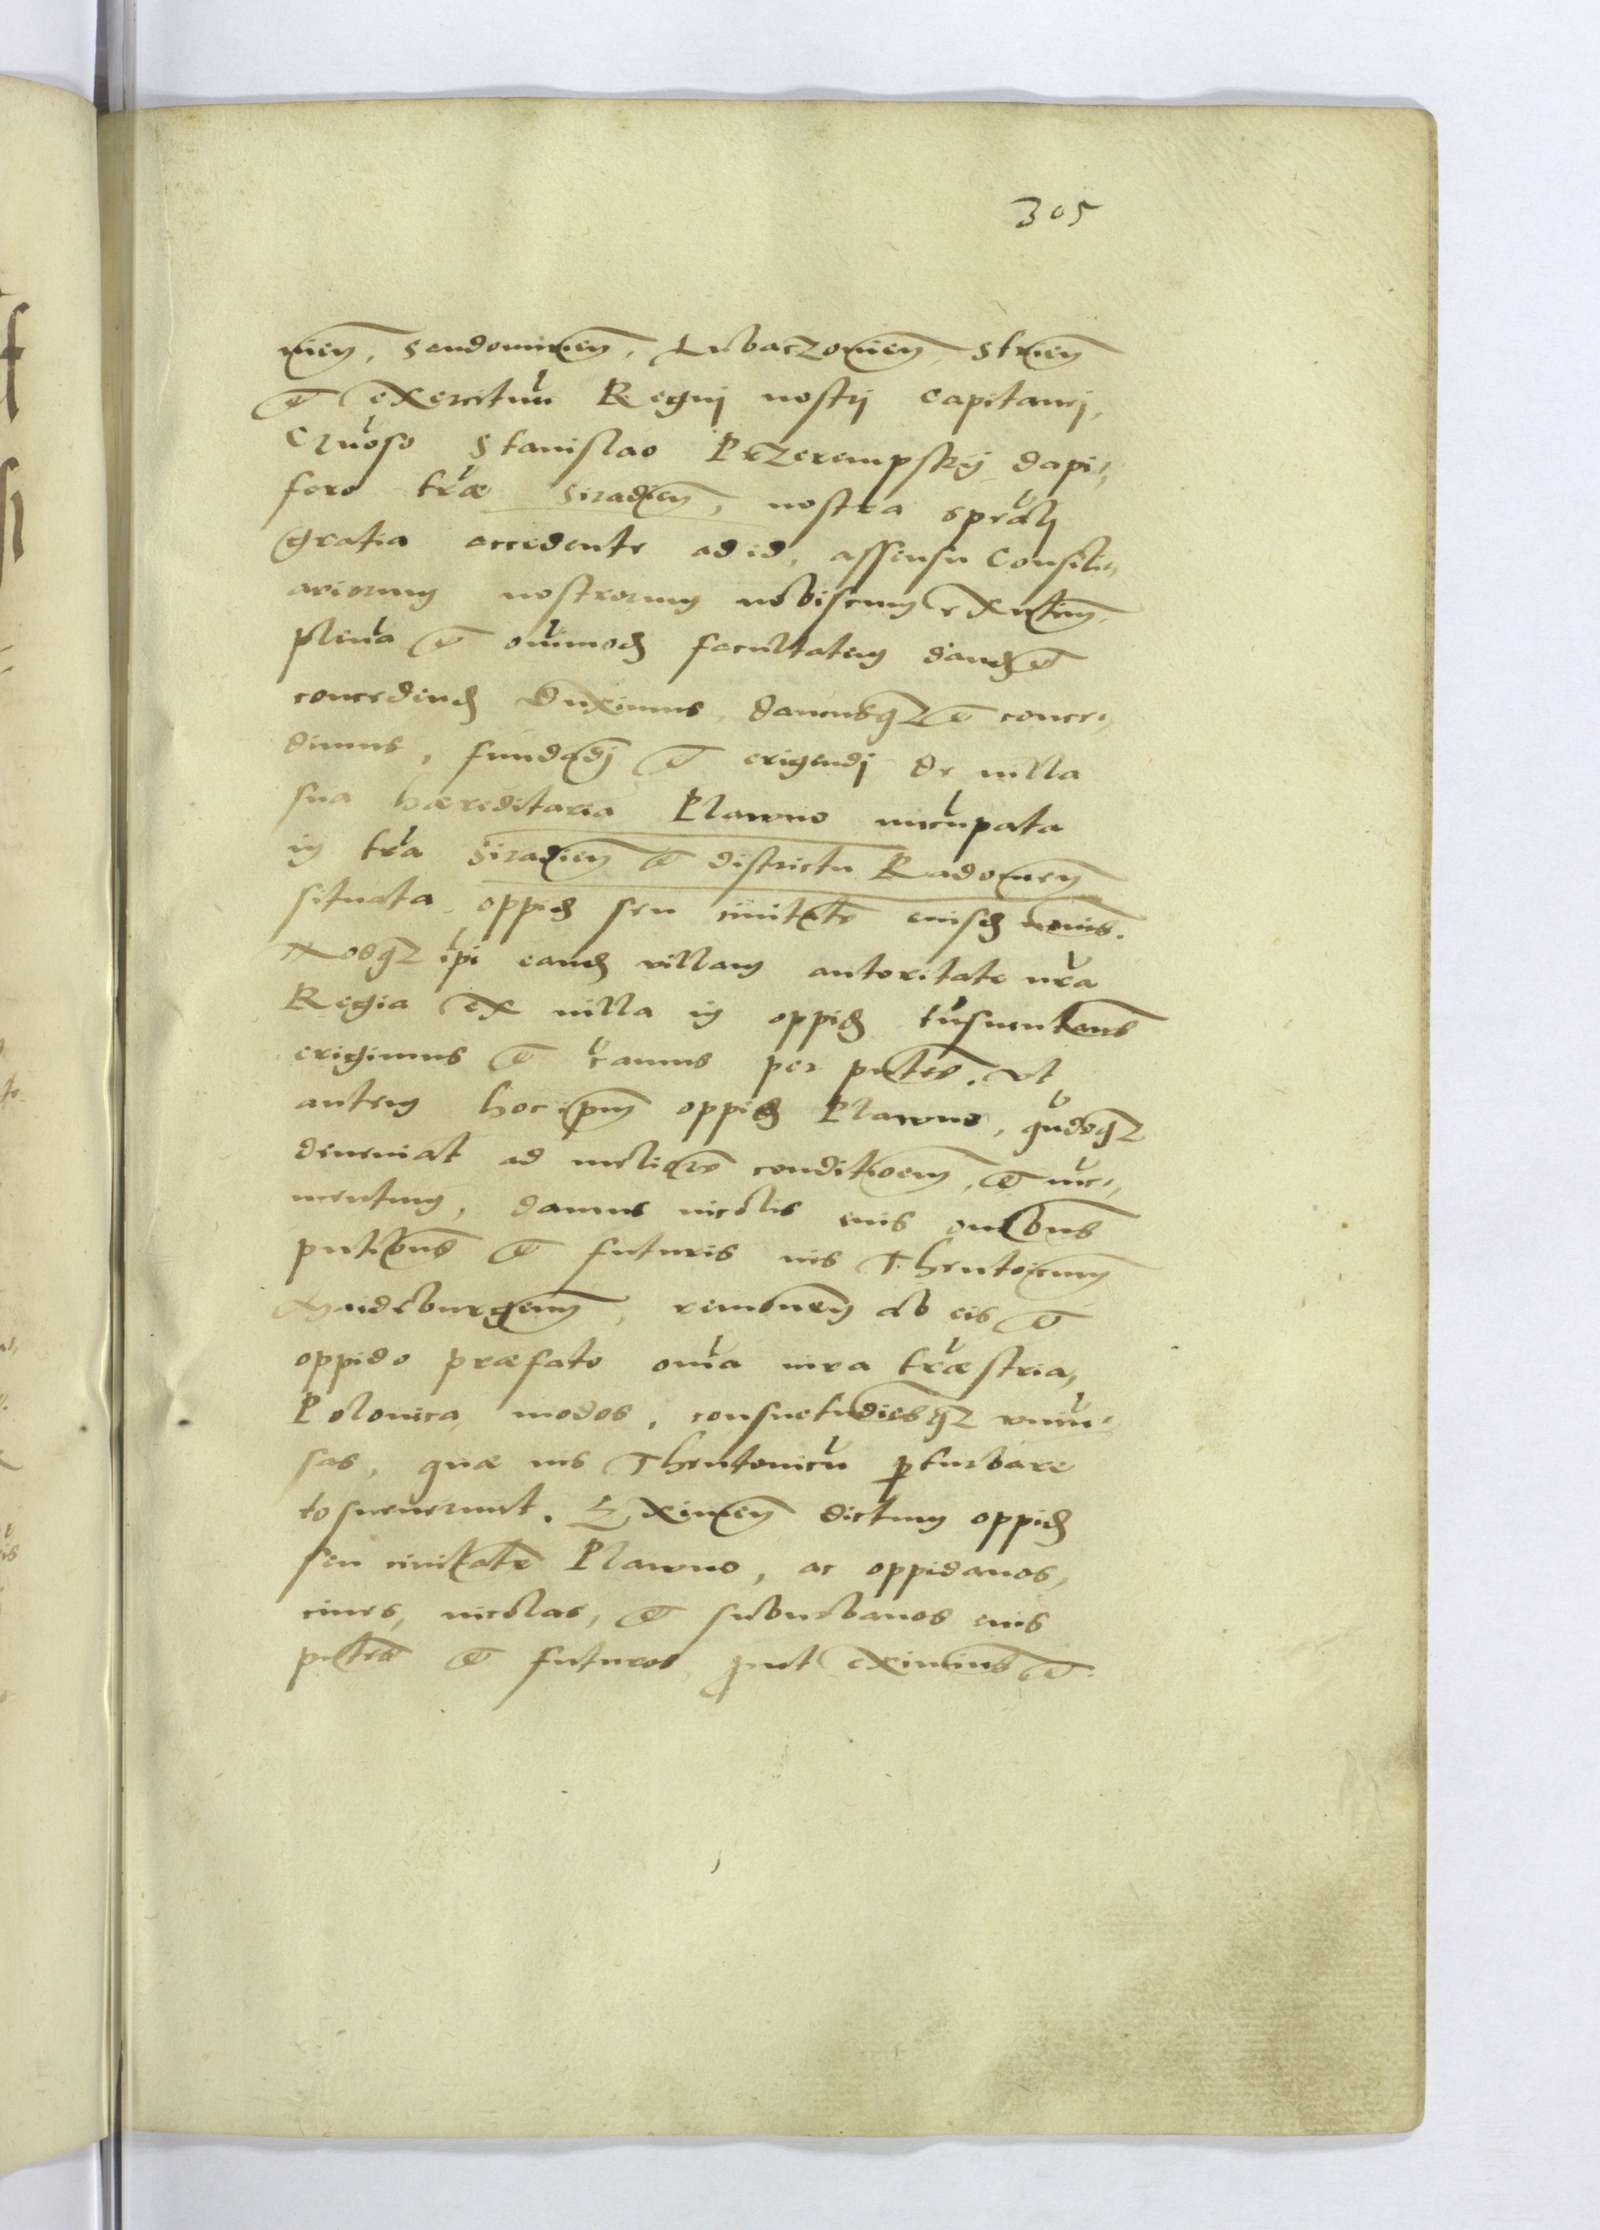 305
nien, Sendomirien, Lubaczouien, Strien
et exercituu Regni nostri capitanei,
Gnoso Stanislao Przerempsky dapi,
fero træ Siradien, nostra speali
gratia accedente ad id, assensu Consili,
ariorum nostrorum nobiscum existen,
plena et omnimod facultatem dand et
concedend duximus, damusqz et conce,
dimus, fundadi et erigendi de uilla
sua hæreditaria Plawno nucupata
in tra Siradien et districtu Radomen
situata oppid seu ciuitate eiusd nominis.
Nosqz ipi eand villam autoritate nra
Regia ex uilla in oppid
erigimus et per pntes. Vt
autem hoc ipm oppid Plawno,
deueniat ad meliore conditioem, et incr,
mentum, damus incolis eius omibus
pntibus et futuris ius Theutoicum
Maideburgen, remouen ab eis et
oppido præfato omia iura træstria,
Polonica, modos, consuetudiesqz vniu,
sas, quæ ius Theutonicu pturbare
cosueuerunt. Eximen dictum oppid
seu ciuitate Plawno, ac oppidanos,
ciues, incolas, et suburbanos eius
pntes et futuros put eximimus et